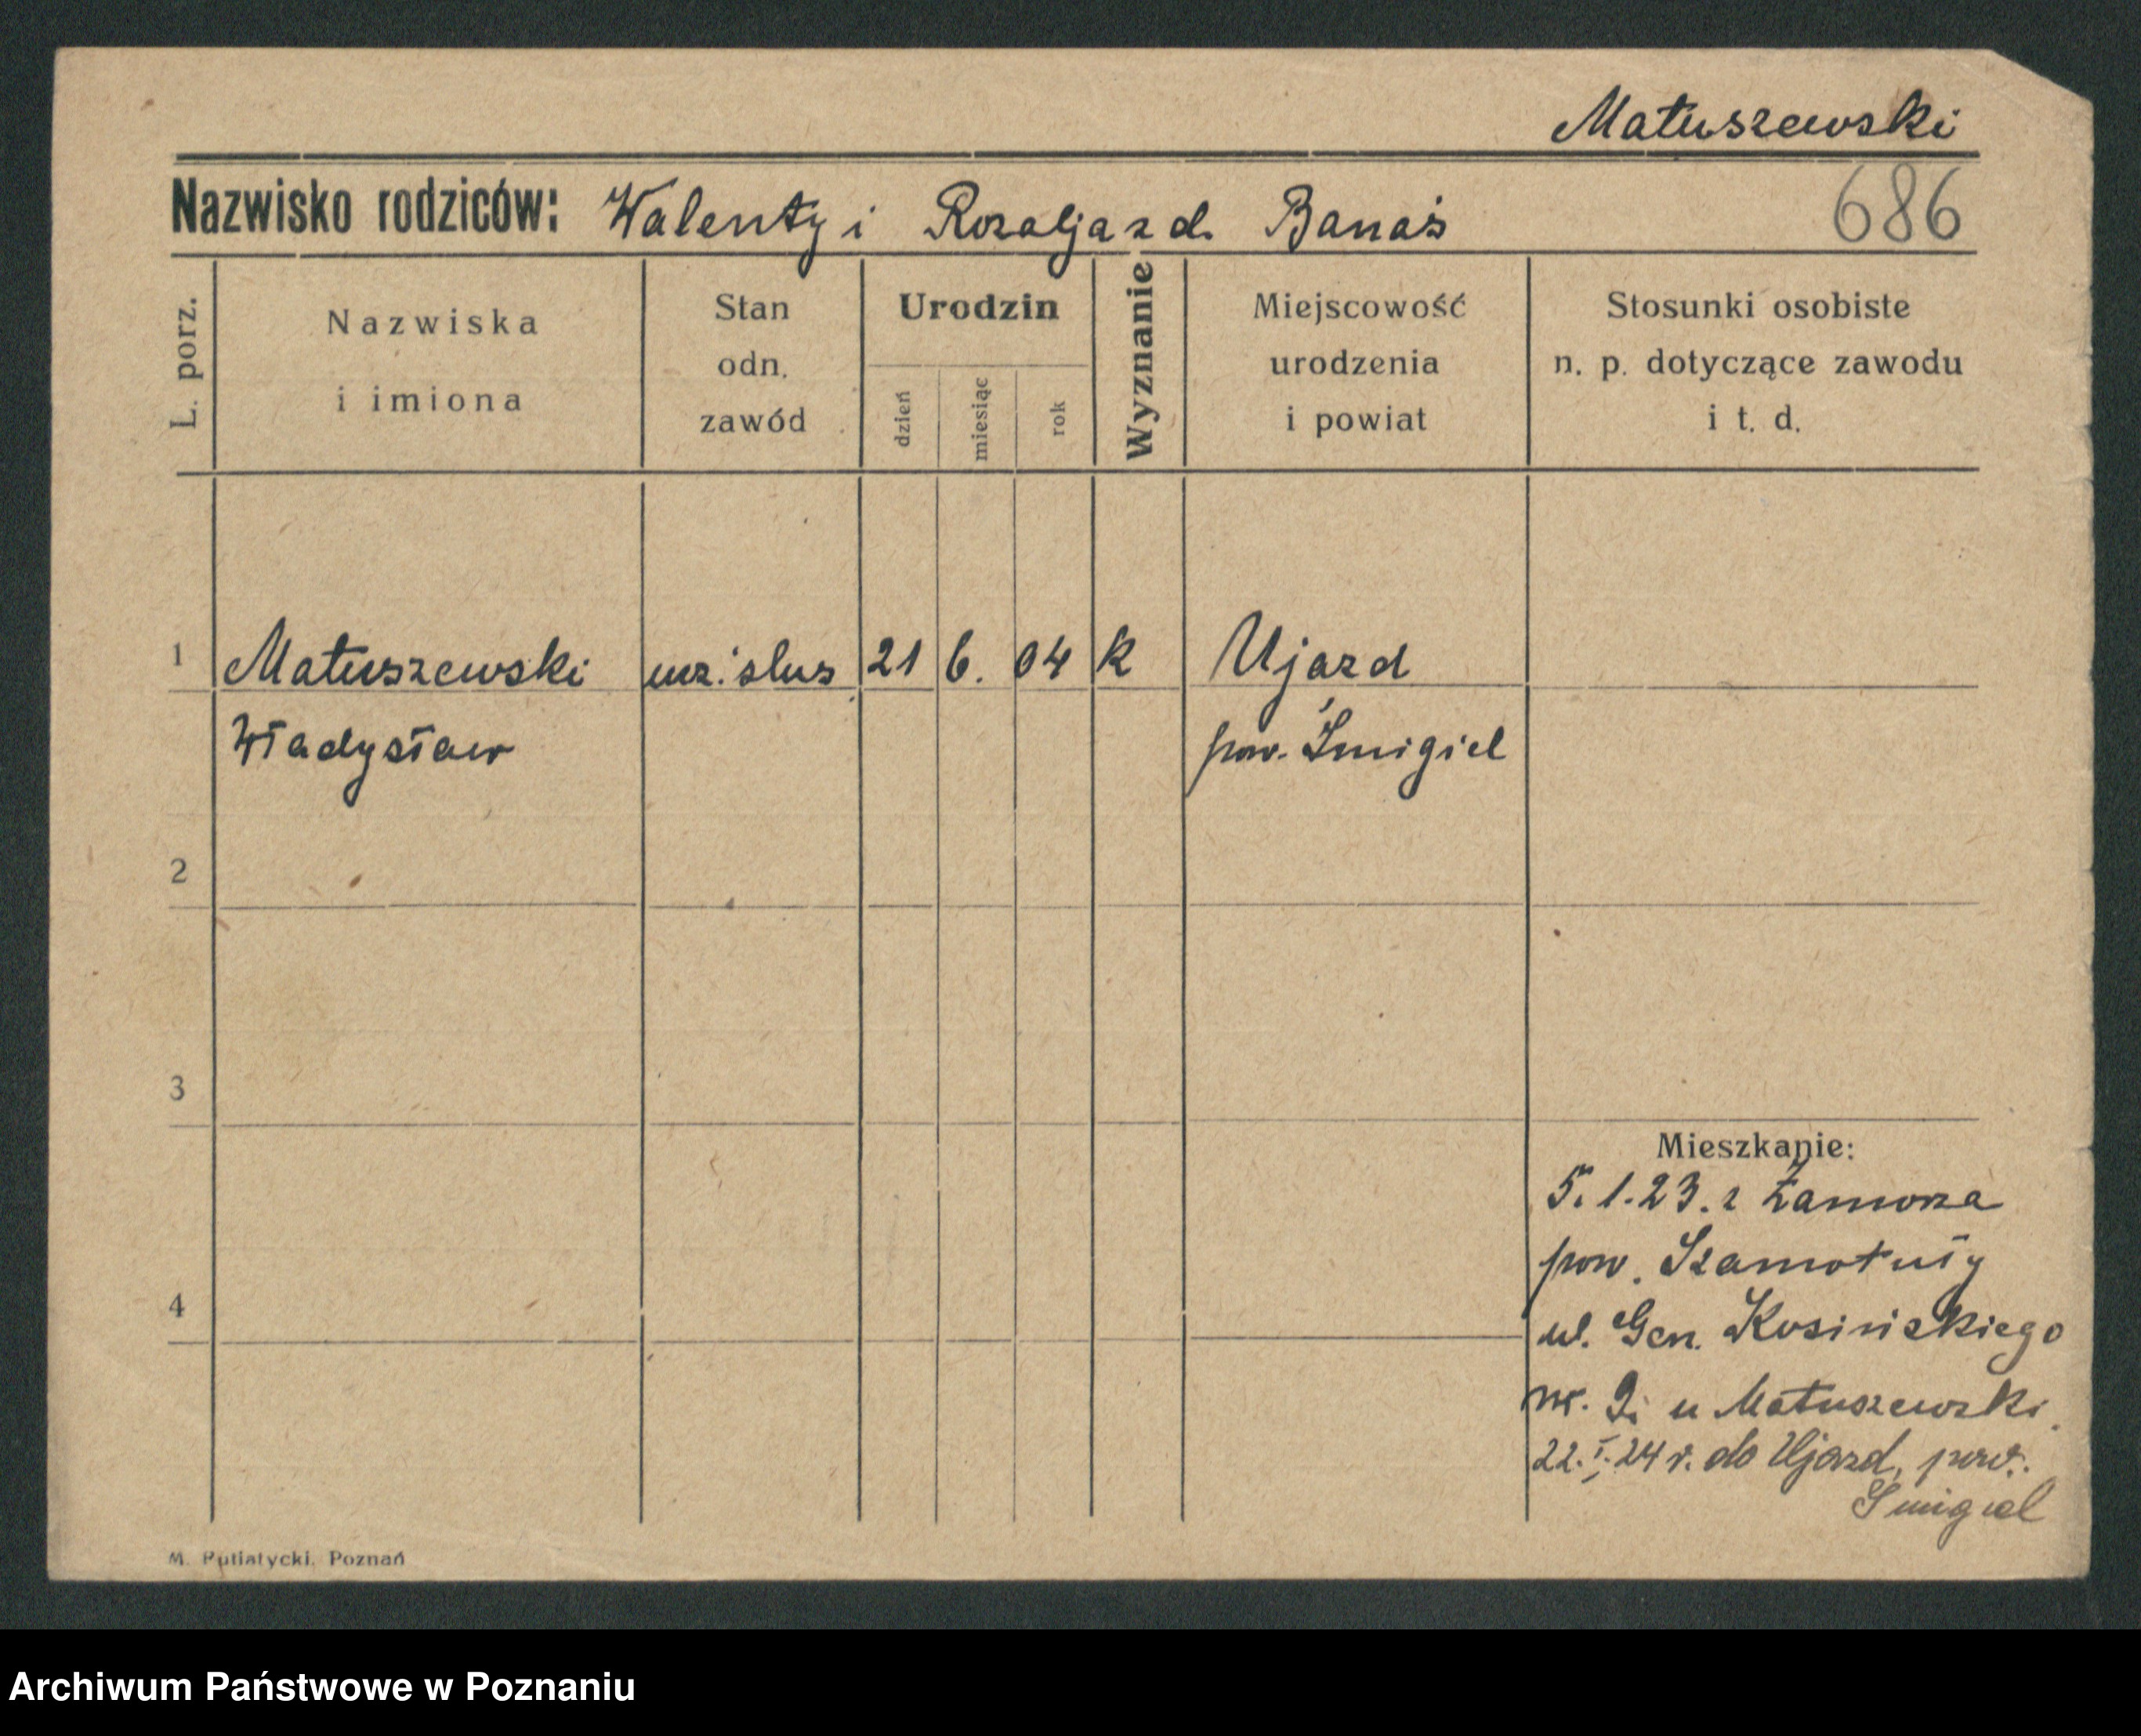 Matuszewski
Nazwisko rodziców: Walenty i Rozalja z d. Banaś
686
L. porz.
Nazwiska
i imiona
Stan
odn.
zawód
Urodzin
dzień
miesiąc
rok
Wyznanie
Miejscowość
urodzenia
i powiat
Stosunki osobiste
n. p. dotyczące zawodu
i t. d.
1 Matuszewski ucz. ślus 21 6. 04 k Ujazd
Władysław pow. Śmigiel
2
3
4
Mieszkanie:
5. 1. 23. z
pow. Szamotuły
ul. Gen. Kosińskiego
nr. u Matuszewski
22. I. 24 r. do Ujazd, pow.
Smigiel
M. Putiatycki, Poznań
Archiwum Państwowe w Poznaniu